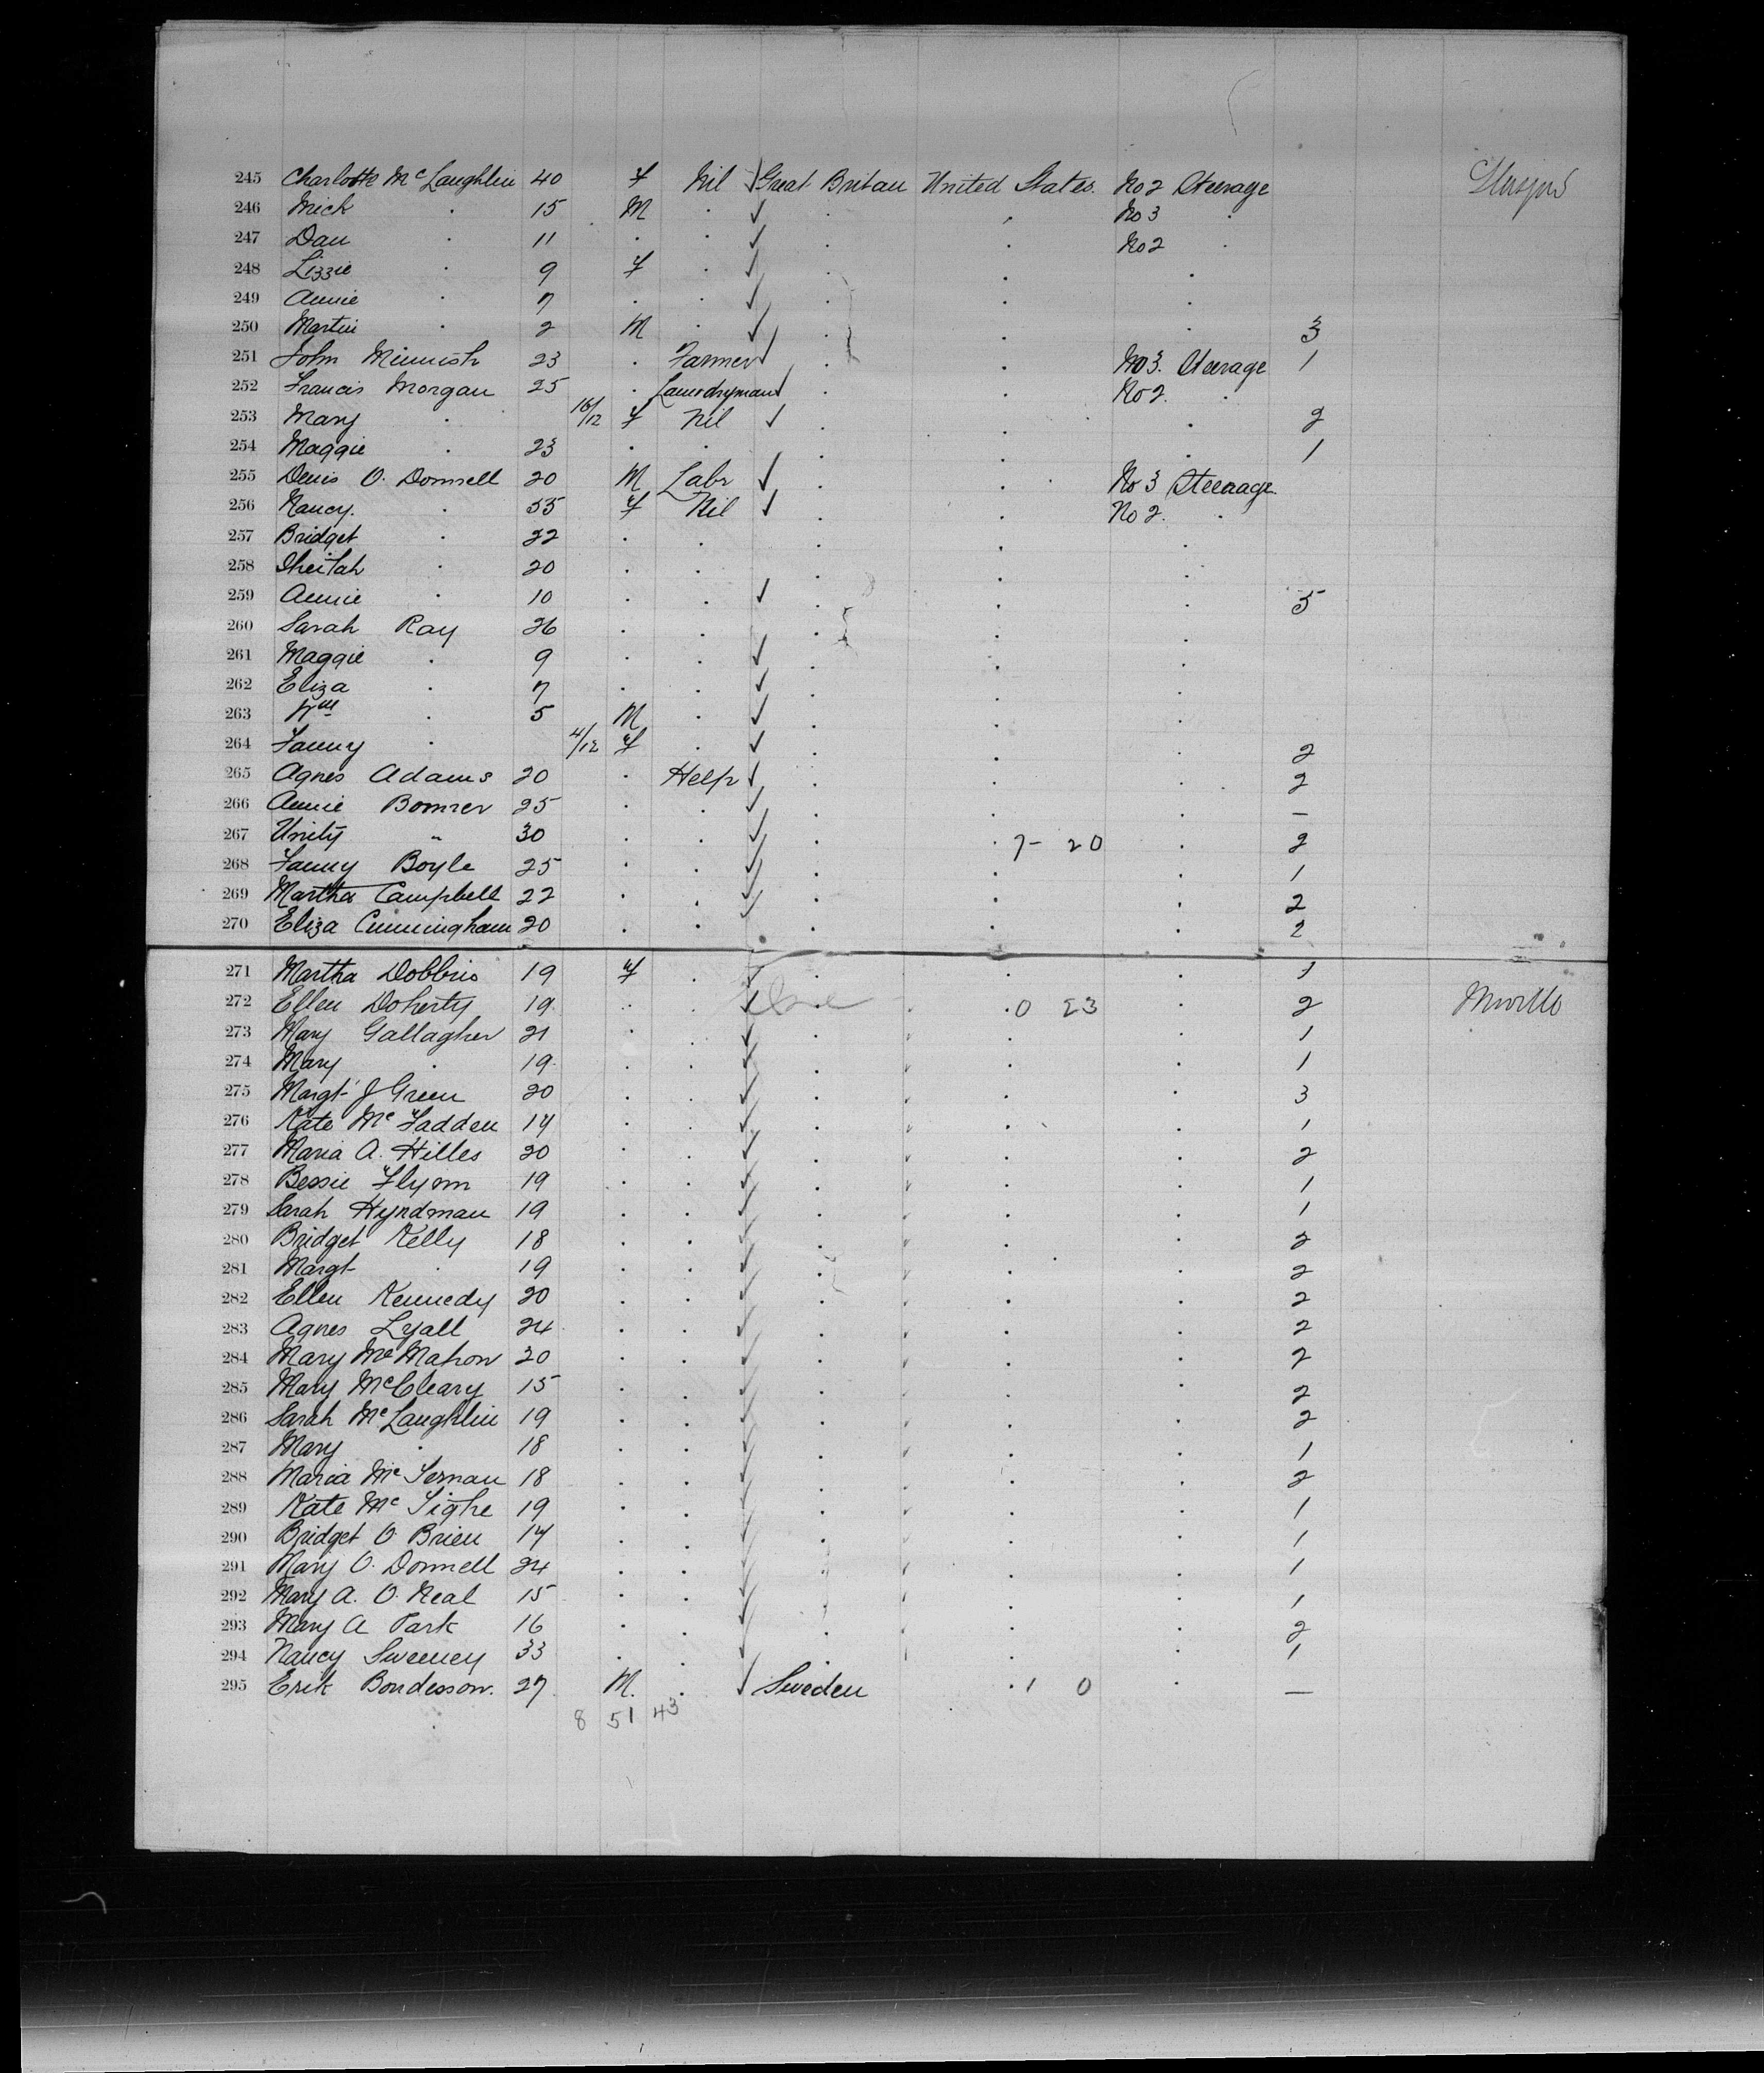 245 Charlotte McLaughlin 40 F Nil Great Britain United States. No 2 Steerage
246 Mick . 15 M . . . No 3 .
247 Dan . 11 . . . . No 2 .
248 Lizzie . 9 F . . .
249 Annie . 7 . . . . .
250 Martin . 2 M . . . . 3
251 John Minnish 23 . Farmer . . No 3. Steerage 1
252 Francis Morgan 25 . Laundryman . . No 2. .
253 Mary . 10/12 F Nil . . . 2
254 Maggie . 23 . . . . . 1
255 Denis O. Donnell 20 M Labr . . No 3 Steerage.
256 Nancy. . 55 F Nil . . No 2. .
257 Bridget . 22 . . . . .
258 . 20 . . . . .
259 Annie . 10 . . . . . 5
260 Sarah Ray 26 . . . . .
261 Maggie . 9 . . . . .
262 Eliza . 7 . . . . .
263 Wm . 5 M . . . .
264 Fanny . 4/12 F . . . . 2
265 Agnes Adams 20 . Help . . . 2
266 Annie Bonner 25 . . . . . —
267 Unity " 30 . . . . 7 - 20 . 2
268 Fanny Boyle 25 . . . . . 1
269 Martha Campbell 22 . . . . . 2
270 Eliza Cunningham 20 . . . . . 2
271 Martha Dobbins 19 F . . . . 1
272 Ellen Doherty 19 . . . 0 23 . 2 Moville
273 Mary Gallagher 21 . . . . . 1
274 Mary . 19 . . . . . 1
275 Margt J Green 20 . . . . . 3
276 Kate McFadden 14 . . . . . 1
277 Maria A. Hilles 20 . . . . . 2
278 Bessie Flynn 19 . . . . . 1
279 Sarah Hyndman 19 . . . . . 1
280 Bridget Kelly 18 . . . . . 2
281 Margt . 19 . . . . . 2
282 Ellen Kennedy 20 . . . . . 2
283 Agnes Lyall 24 . . . . . 2
284 Mary McMahon 20 . . . . . 2
285 Mary McCleary 15 . . . . . 2
286 Sarah McLaughlin 19 . . . . . 2
287 Mary . 18 . . . . . 1
288 Maria McTernan 18 . . . . . 2
289 Kate McTighe 19 . . . . . 1
290 Bridget O Brien 14 . . . . . 1
291 Mary O. Donnell 24 . . . . . 1
292 Mary A. O. Neal 15 . . . . . 1
293 Mary A Park 16 . . . . . 2
294 Nancy Sweeney 33 . . . . . 1
295 Erik Bondesson. 27 M. . Sweden . 1 0 . —
8 51 43